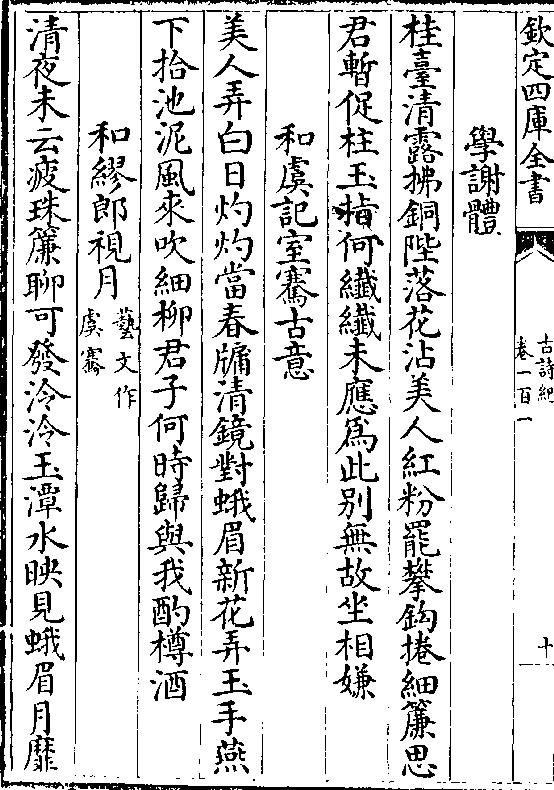 欽定四庫全書
古詩紀
卷一百一
十
學謝體
桂臺清露拂銅陛落花沾美人紅粉罷攀鈎捲細簾思
君暫促柱玉指何纖纖未應為此别無故坐相嫌
和虞記室騫古意
美人弄白日灼灼當春牖清鏡對蛾眉新花弄玉手燕
下拾池泥風來吹細柳君子何時歸與我酌樽酒
和繆郎視月
藝文作
虞騫
清夜未云疲珠簾聊可發泠泠玉潭水映見蛾眉月靡